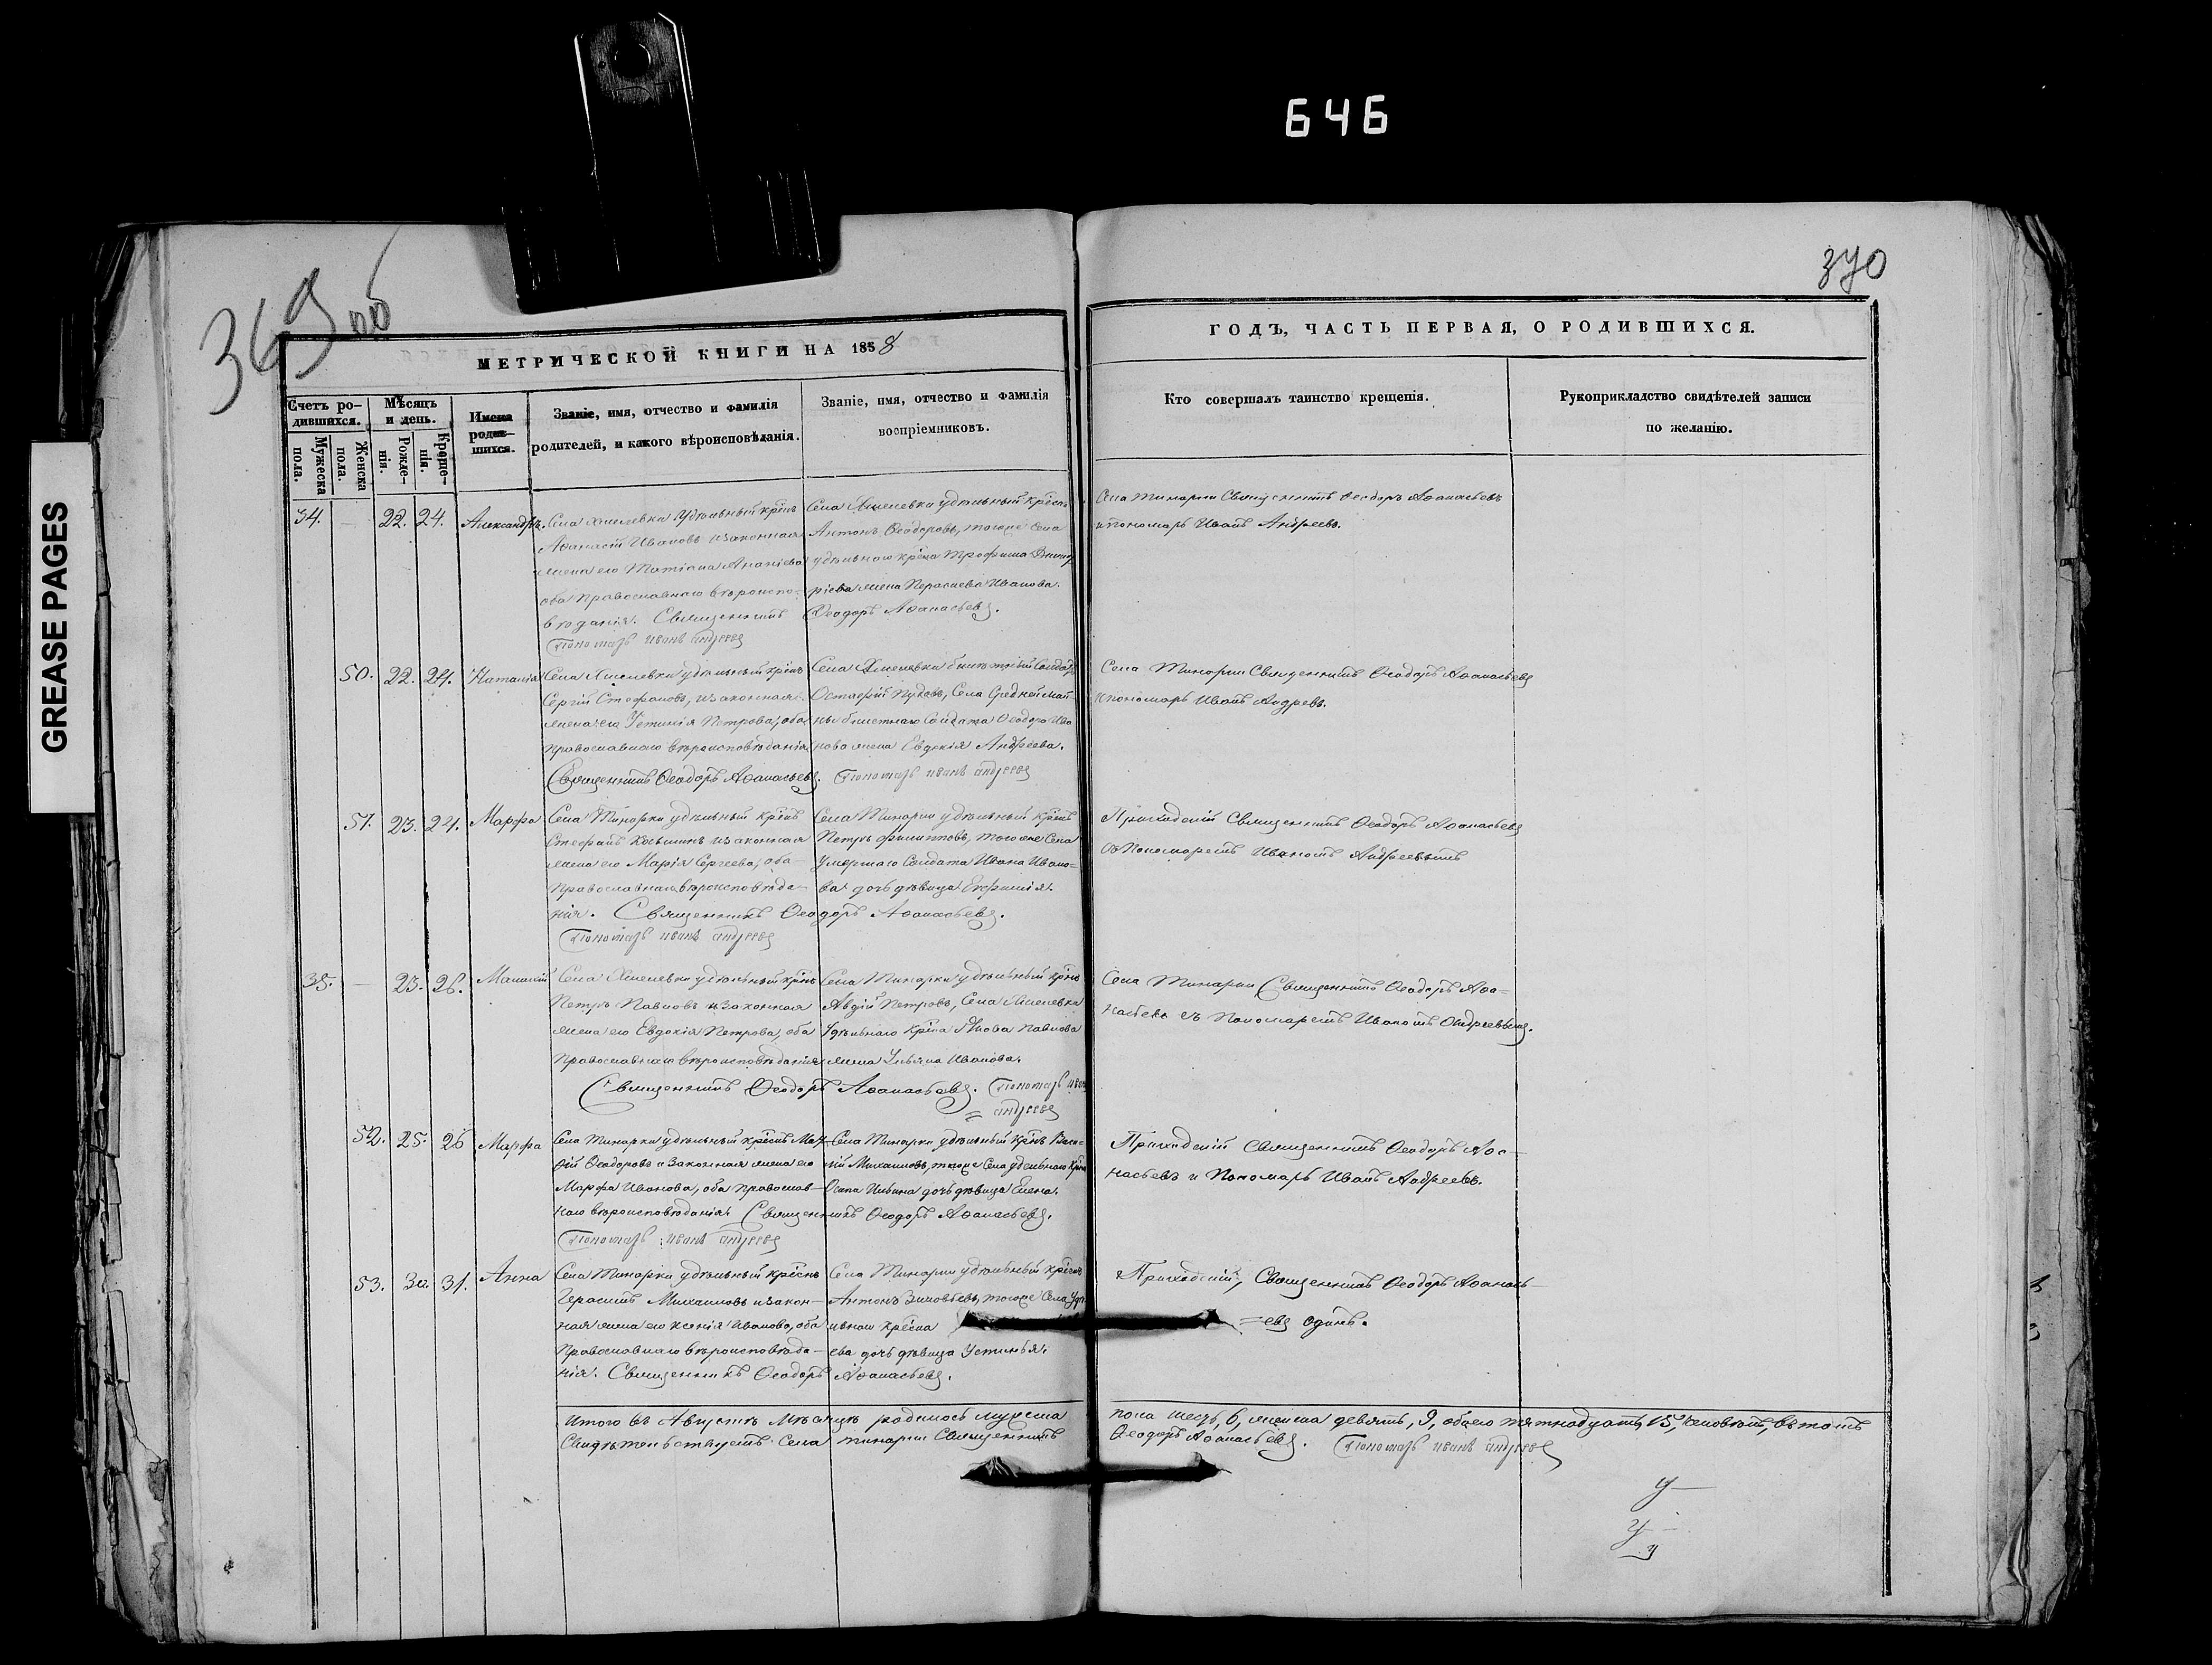 646
GREASE PAGES
369об
370
МЕТРИЧЕСКОЙ КНИГИ НА 1858
ГОДЪ, ЧАСТЬ ПЕРВАЯ, О РОДИВШИХСЯ.
Счетъ родившихся.
Мужеска пола.
Женска пола.
Мѣсяцъ и день.
Рожденія.
Крещенія.
Имена родившихся.
Званіе, имя, отчество и фамилія
родителей, и какого вѣроисповѣданія.
Званіе, имя, отчество и фамилія
воспріемниковъ.
Кто совершалъ таинство крещенія.
Рукоприкладство свидѣтелей записи
по желанію.
34. — 22. 24. Александръ.
Села Хмелевки удѣльный крѣнъ
Аѳанасій Ивановъ и законная
жена его Татіана Ананіева
оба православнаго вѣроиспо-
вѣданія. Священникъ Ѳеодоръ Аѳанасьевъ.
Пономарь иванъ андреевъ
Села Хмелевки удѣльный
Антонъ Ѳеодоровъ, тогоже села
удѣльнаго Трофима Димит
ріева жена Параскева Иванова.
Села Тинарки Священникъ Ѳеодоръ Аѳанасьевъ
и пономарь Иванъ Андреевъ.
50. 22. 24. Наталія
Села Хмелевки удѣльный
Сергій Стефановъ, и законная
жена его Устинія Петрова, оба
православнаго вѣроисповѣданія
Священникъ Ѳеодоръ Аѳанасьевъ. Пономарь иванъ андреевъ
Села Хмелевки билетный Солдатъ
Села Средней Май
ны билетнаго Солдата Ѳеодора Ива
нова жена Евдокія Андреева.
Села Тинарки Священникъ Ѳеодоръ Аѳанасьевъ
и пономарь Иванъ Андреевъ.
51. 23. 24. Марѳа
Села Тинарки удѣльный
Стефанъ Козьминъ и законная
жена его Марія Сергеева, оба
православнаго вѣроисповѣда-
нія. Священникъ Ѳеодоръ Аѳанасьевъ.
Пономарь иванъ андреевъ
Села Тинарки удѣльный
Петръ Филипповъ, тогоже Села
умершаго Солдата Ивана Ивано=
ва дочь дѣвица Евфимія.
Приходскій Священникъ Ѳеодоръ Аѳанасьевъ
съ Пономаремъ Иваномъ Андреевымъ
35. — 23. 26.
Села Хмелевки удѣльный
Петръ Павловъ и законная
жена его Евдокія Петрова, оба
православнаго вѣроисповѣданія
Священникъ Ѳеодоръ Аѳанасьевъ. Пономарь иванъ
= андреевъ
Села Тинарки удѣльный
Авдій Петровъ, Села Хмелевки
удѣльнаго Якова Павлова
жена Ульяна Иванова.
Села Тинарки Священникъ Ѳеодоръ Аѳа=
насьевъ съ Пономаремъ Иваномъ Андреевымъ.
52. 25. 26 Марѳа
Села Тинарки удѣльный
Ѳеодоровъ и законная жена его
Марѳа Иванова, оба православ-
наго вѣроисповѣданія. Священникъ Ѳеодоръ Аѳанасьевъ.
Пономарь иванъ андреевъ
Села Тинарки удѣльный Васи=
лій Михаиловъ, тогоже Села удѣльнаго
Осипа Ильина дочь дѣвица Елена.
Приходскій священникъ Ѳеодоръ Аѳа-
насьевъ и Пономарь Иванъ Андреевъ.
53. 30. 31. Анна
Села Тинарки удѣльный
Герасимъ Михаиловъ и закон-
ная жена его Ксенія Иванова, оба
Православнаго вѣроисповѣда-
нія. Священникъ Ѳеодоръ Аѳанасьевъ.
Села Тинарки удѣльный
Антонъ Зиновьевъ, тогоже Села удѣ
льнаго
ева дочь дѣвица Устинья.
Приходскій, Священникъ Ѳеодоръ Аѳанась-
=евъ одинъ.
Итого въ Августѣ Мѣсяцѣ родилось мужеска пола шесть, 6, женска девять, 9, обоего пятнадцать, 15, человѣкъ, въ томъ
Свидѣтельствуемъ Села Тинарки Священникъ Ѳеодоръ Аѳанасьевъ. Пономарь иванъ андреевъ